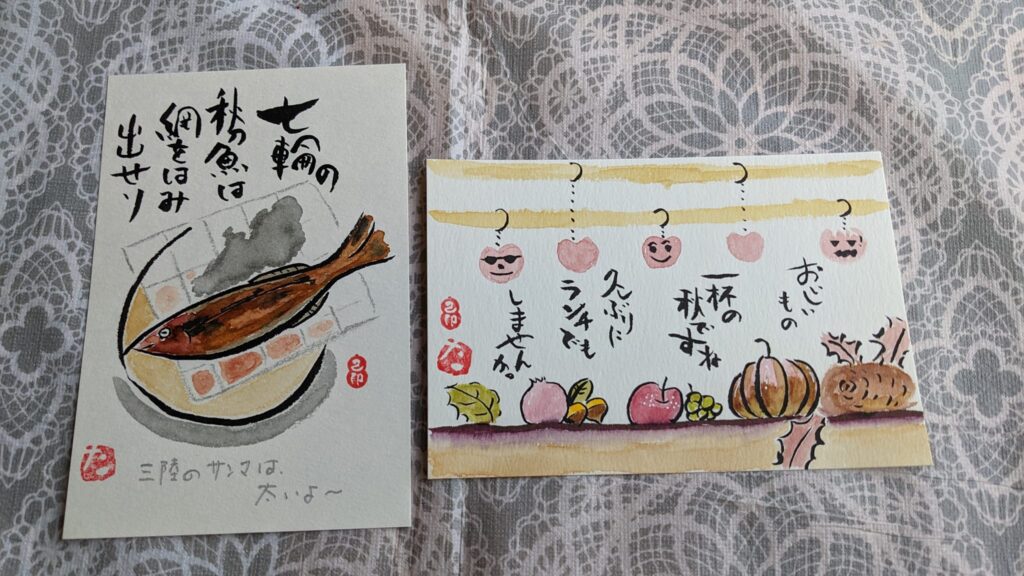 七輪の
秋刀魚は
網をはみ
出せり
三陸のサンマは、
太いよ～
おいしい
もの
一杯の
秋ですね
久ぶりに
ランチでも
しませんか